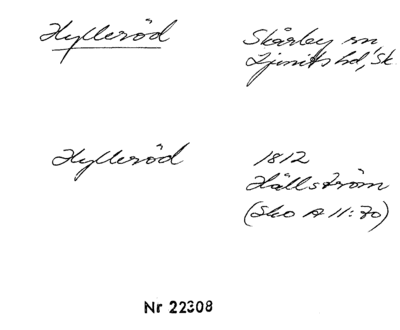 Hylleröd
Skårby sn,
Ljunits hd, Sk.
Hylleröd
1812
Hällström
(Sko A 11:70)
Nr 22308